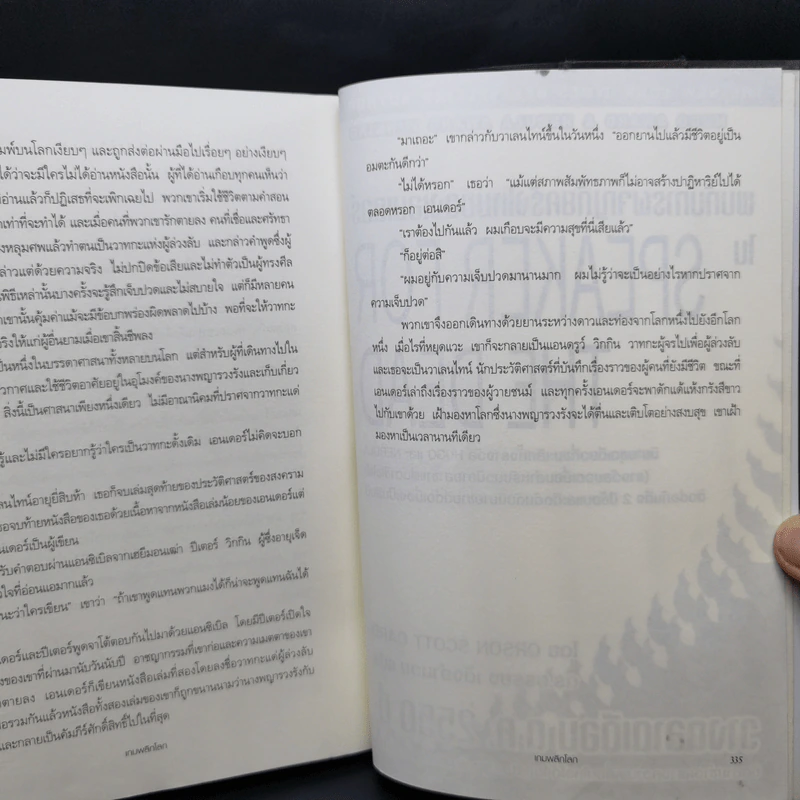 มพ์บนโลกเงียบๆ และถูกส่งต่อผ่านมือไปเรื่อยๆ อย่างเงียบๆ
ได้ว่าจะมีใครไม่ได้อ่านหนังสือนั้น ผู้ที่ได้อ่านเกือบทุกคนเห็นว่า
อ่านแล้วก็ปฏิเสธที่จะเพิกเฉยไป พวกเขาเริ่มใช้ชีวิตตามคำสอน
เท่าที่จะทำได้ และเมื่อคนที่พวกเขารักตายลง คนที่เชื่อและศรัทธา
งหลุมศพแล้วทำตนเป็นวาทกะแห่งผู้ล่วงลับ และกล่าวคำพูดซึ่งผู้
ล่าวแต่ด้วยความจริง ไม่ปกปิดข้อเสียและไม่ทำตัวเป็นผู้ทรงศีล
พิธีเหล่านั้นบางครั้งจะรู้สึกเจ็บปวดและไม่สบายใจ แต่ก็มีหลายคน
าเขานั้นคุ้มค่าแม้จะมีข้อบกพร่องผิดพลาดไปบ้าง พอที่จะให้วาทกะ
ริงให้แก่ผู้อื่นยามเมื่อเขาสิ้นชีพลง
ป็นหนึ่งในบรรดาศาสนาทั้งหลายบนโลก แต่สำหรับผู้ที่เดินทางไปใน
วกาศและใช้ชีวิตอาศัยอยู่ในอุโมงค์ของนางพญารวงรังและเก็บเกี่ยว
สิ่งนี้เป็นศาสนาเพียงหนึ่งเดียว ไม่มีอาณานิคมที่ปราศจากวาทกะแต่
รู้และไม่มีใครอยากรู้ว่าใครเป็นวาทกะดั้งเดิม เอนเดอร์ไม่คิดจะบอก
ลนไทน์อายุยี่สิบห้า เธอก็จบเล่มสุดท้ายของประวัติศาสตร์ของสงคราม
ธอจบท้ายหนังสือของเธอด้วยเนื้อหาจากหนังสือเล่มน้อยของเอนเดอร์แต่
นเดอร์เป็นผู้เขียน
รับคำตอบผ่านแอนซิเบิลจากเฮยีมอนเฒ่า ปีเตอร์ วิกกิน ผู้ซึ่งอายุเจ็ด
วใจที่อ่อนแอมากแล้ว
นะว่าใครเขียน" เขาว่า "ถ้าเขาพูดแทนพวกแมงได้ก็น่าจะพูดแทนฉันได้
ดอร์และปีเตอร์พูดจาโต้ตอบกันไปมาด้วยแอนซิเบิล โดยมีปีเตอร์เปิดใจ
งของเขาที่ผ่านมานับวันนับปี อาชญากรรมที่เขาก่อและความเมตตาของเขา
าตายลง เอนเดอร์ก็เขียนหนังสือเล่มที่สองโดยลงชื่อวาทกะแต่ผู้ล่วงลับ
อรวมกันแล้วหนังสือทั้งสองเล่มของเขาก็ถูกขนานนามว่านางพญารวงรังกับ
และกลายเป็นคัมภีร์ศักดิ์สิทธิ์ไปในที่สุด
เกมพลิกโลก
"มาเถอะ" เขากล่าวกับวาเลนไทน์ขึ้นในวันหนึ่ง "ออกยานไปแล้วมีชีวิตอยู่เป็น
อมตะกันดีกว่า"
"ไม่ได้หรอก" เธอว่า "แม้แต่สภาพสัมพัทธภาพก็ไม่อาจสร้างปาฏิหาริย์ไปได้
ตลอดหรอก เอนเดอร์"
"เราต้องไปกันแล้ว ผมเกือบจะมีความสุขที่นี่เสียแล้ว"
"ก็อยู่ต่อสิ"
"ผมอยู่กับความเจ็บปวดมานานมาก ผมไม่รู้ว่าจะเป็นอย่างไรหากปราศจาก
ความเจ็บปวด"
พวกเขาจึงออกเดินทางด้วยยานระหว่างดาวและท่องจากโลกหนึ่งไปยังอีกโลก
หนึ่ง เมื่อไรที่หยุดแวะ เขาก็จะกลายเป็นแอนดรูว์ วิกกิน วาทกะผู้จรไปเพื่อผู้ล่วงลับ
และเธอจะเป็นวาเลนไทน์ นักประวัติศาสตร์ที่บันทึกเรื่องราวของผู้คนที่ยังมีชีวิต ขณะที่
เอนเดอร์เล่าถึงเรื่องราวของผู้วายชนม์ และทุกครั้งเอนเดอร์จะพาดักแด้แห้งกรังสีขาว
ไปกับเขาด้วย เฝ้ามองหาโลกซึ่งนางพญารวงรังจะได้ตื่นและเติบโตอย่างสงบสุข เขาเฝ้า
มองหาเป็นเวลานานทีเดียว
เกมพลิกโลก
335